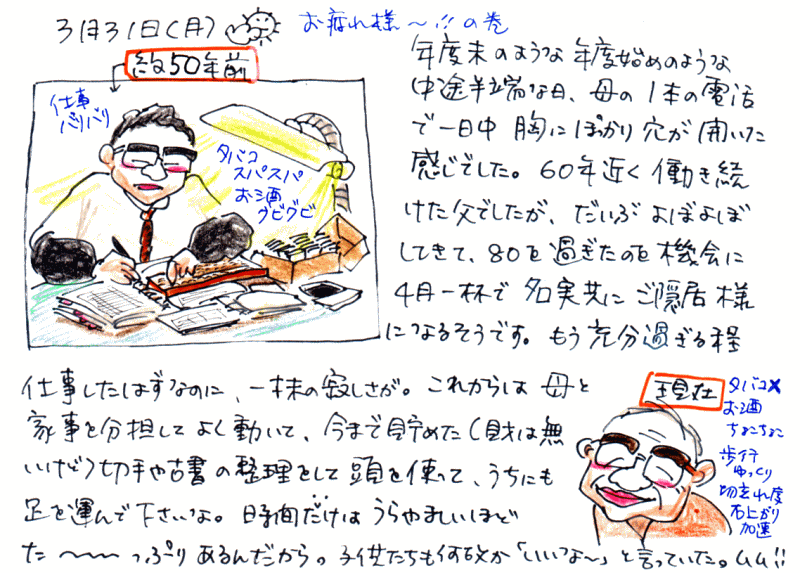 3月31日(月)
お疲れ様〜!!の巻
約50年前
仕事
バリバリ
タバコ
スパスパ
お酒
グビグビ
年度末のような年度始めのような
中途半端な日、母の1本の電話
で一日中 胸にぽっかり穴が開いた
感じでした。60年近く働き続
けた父でしたが、だいぶよぼよぼ
してきて、80を過ぎたのを機会に
4月一杯で名実共にご隠居様
になるそうです。もう充分過ぎる程
仕事したはずなのに、一抹の寂しさが。これからは母と
家事を分担してよく動いて、今まで貯めた(財は無
いけど)切手や古書の整理をして頭を使って、うちにも
足を運んで下さいな。時間だけはうらやましいほど
た〜〜〜っぷりあるんだから。子供たちも何故か「いいな〜」と言っていた。ムム!!
現在
タバコ×
お酒
ちょこちょこ
歩行
ゆっくり
切れ度
右上がり
加速